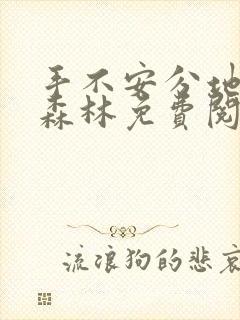 手不安分地
森林免费阅
流浪狗的悲哀